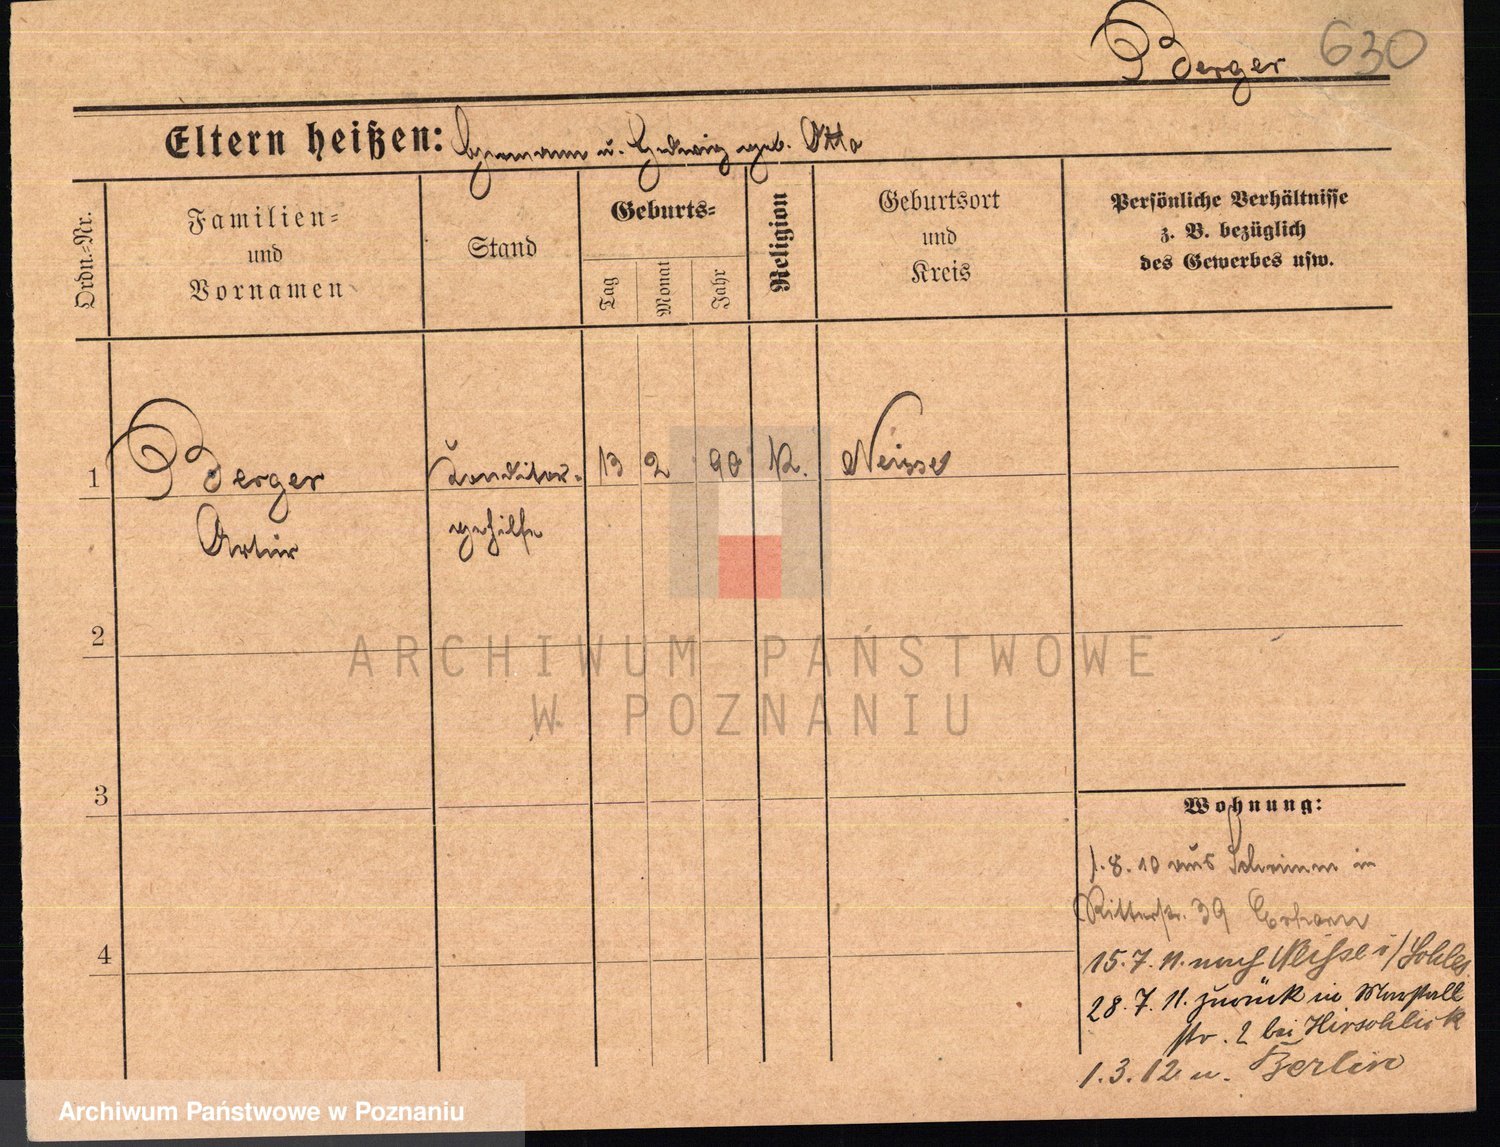 Berger 630
Eltern heißen: Hermann u. Hedwig geb. Otto
Ordn.-Nr.
Familien-
und
Vornamen
Stand
Geburts-
Tag
Monat
Jahr
Religion
Geburtsort
und
Kreis
Persönliche Verhältnisse
z. B. bezüglich
des Gewerbes usw.
1 Berger Konditor- 13 2 90 K. Neisse
Artur gehilfe
2
3
4
ARCHIWUM PAŃSTWOWE
W POZNANIU
Wohnung:
1.8.10 aus Schrimm in
Ritterstr. 39
15.7.11. nach Neisse i/Schles
28.7.11. zurück in Marstall
str. 2 bei Hirschlick
1.3.12 n. Berlin
Archiwum Państwowe w Poznaniu